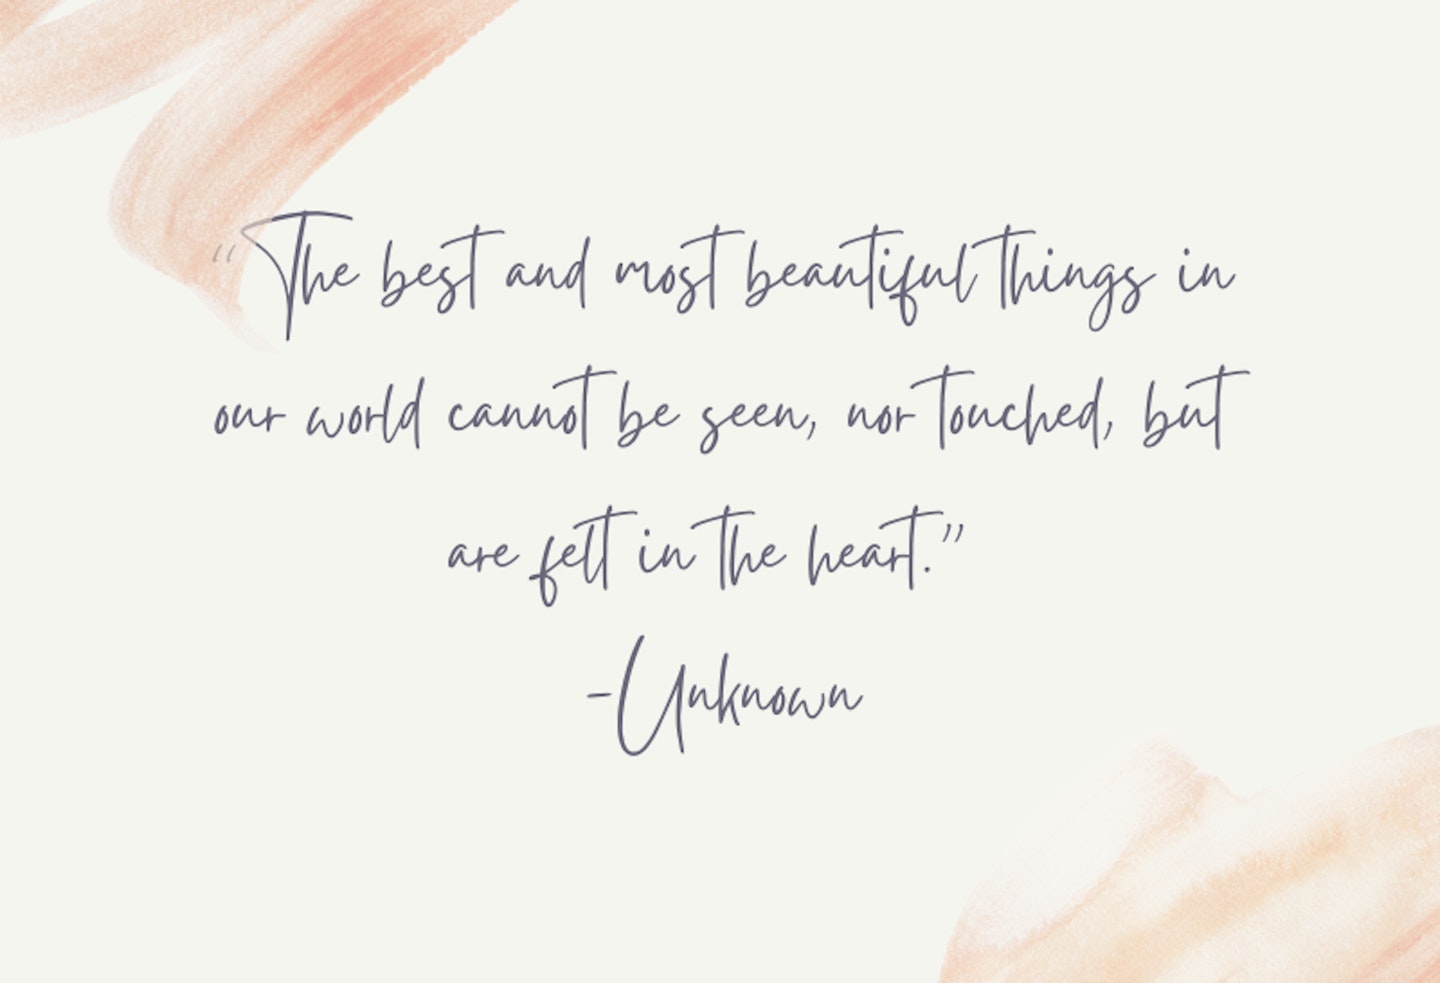 “The best and most beautiful things in
our world cannot be seen, nor touched, but
are felt in the heart.”
-Unknown